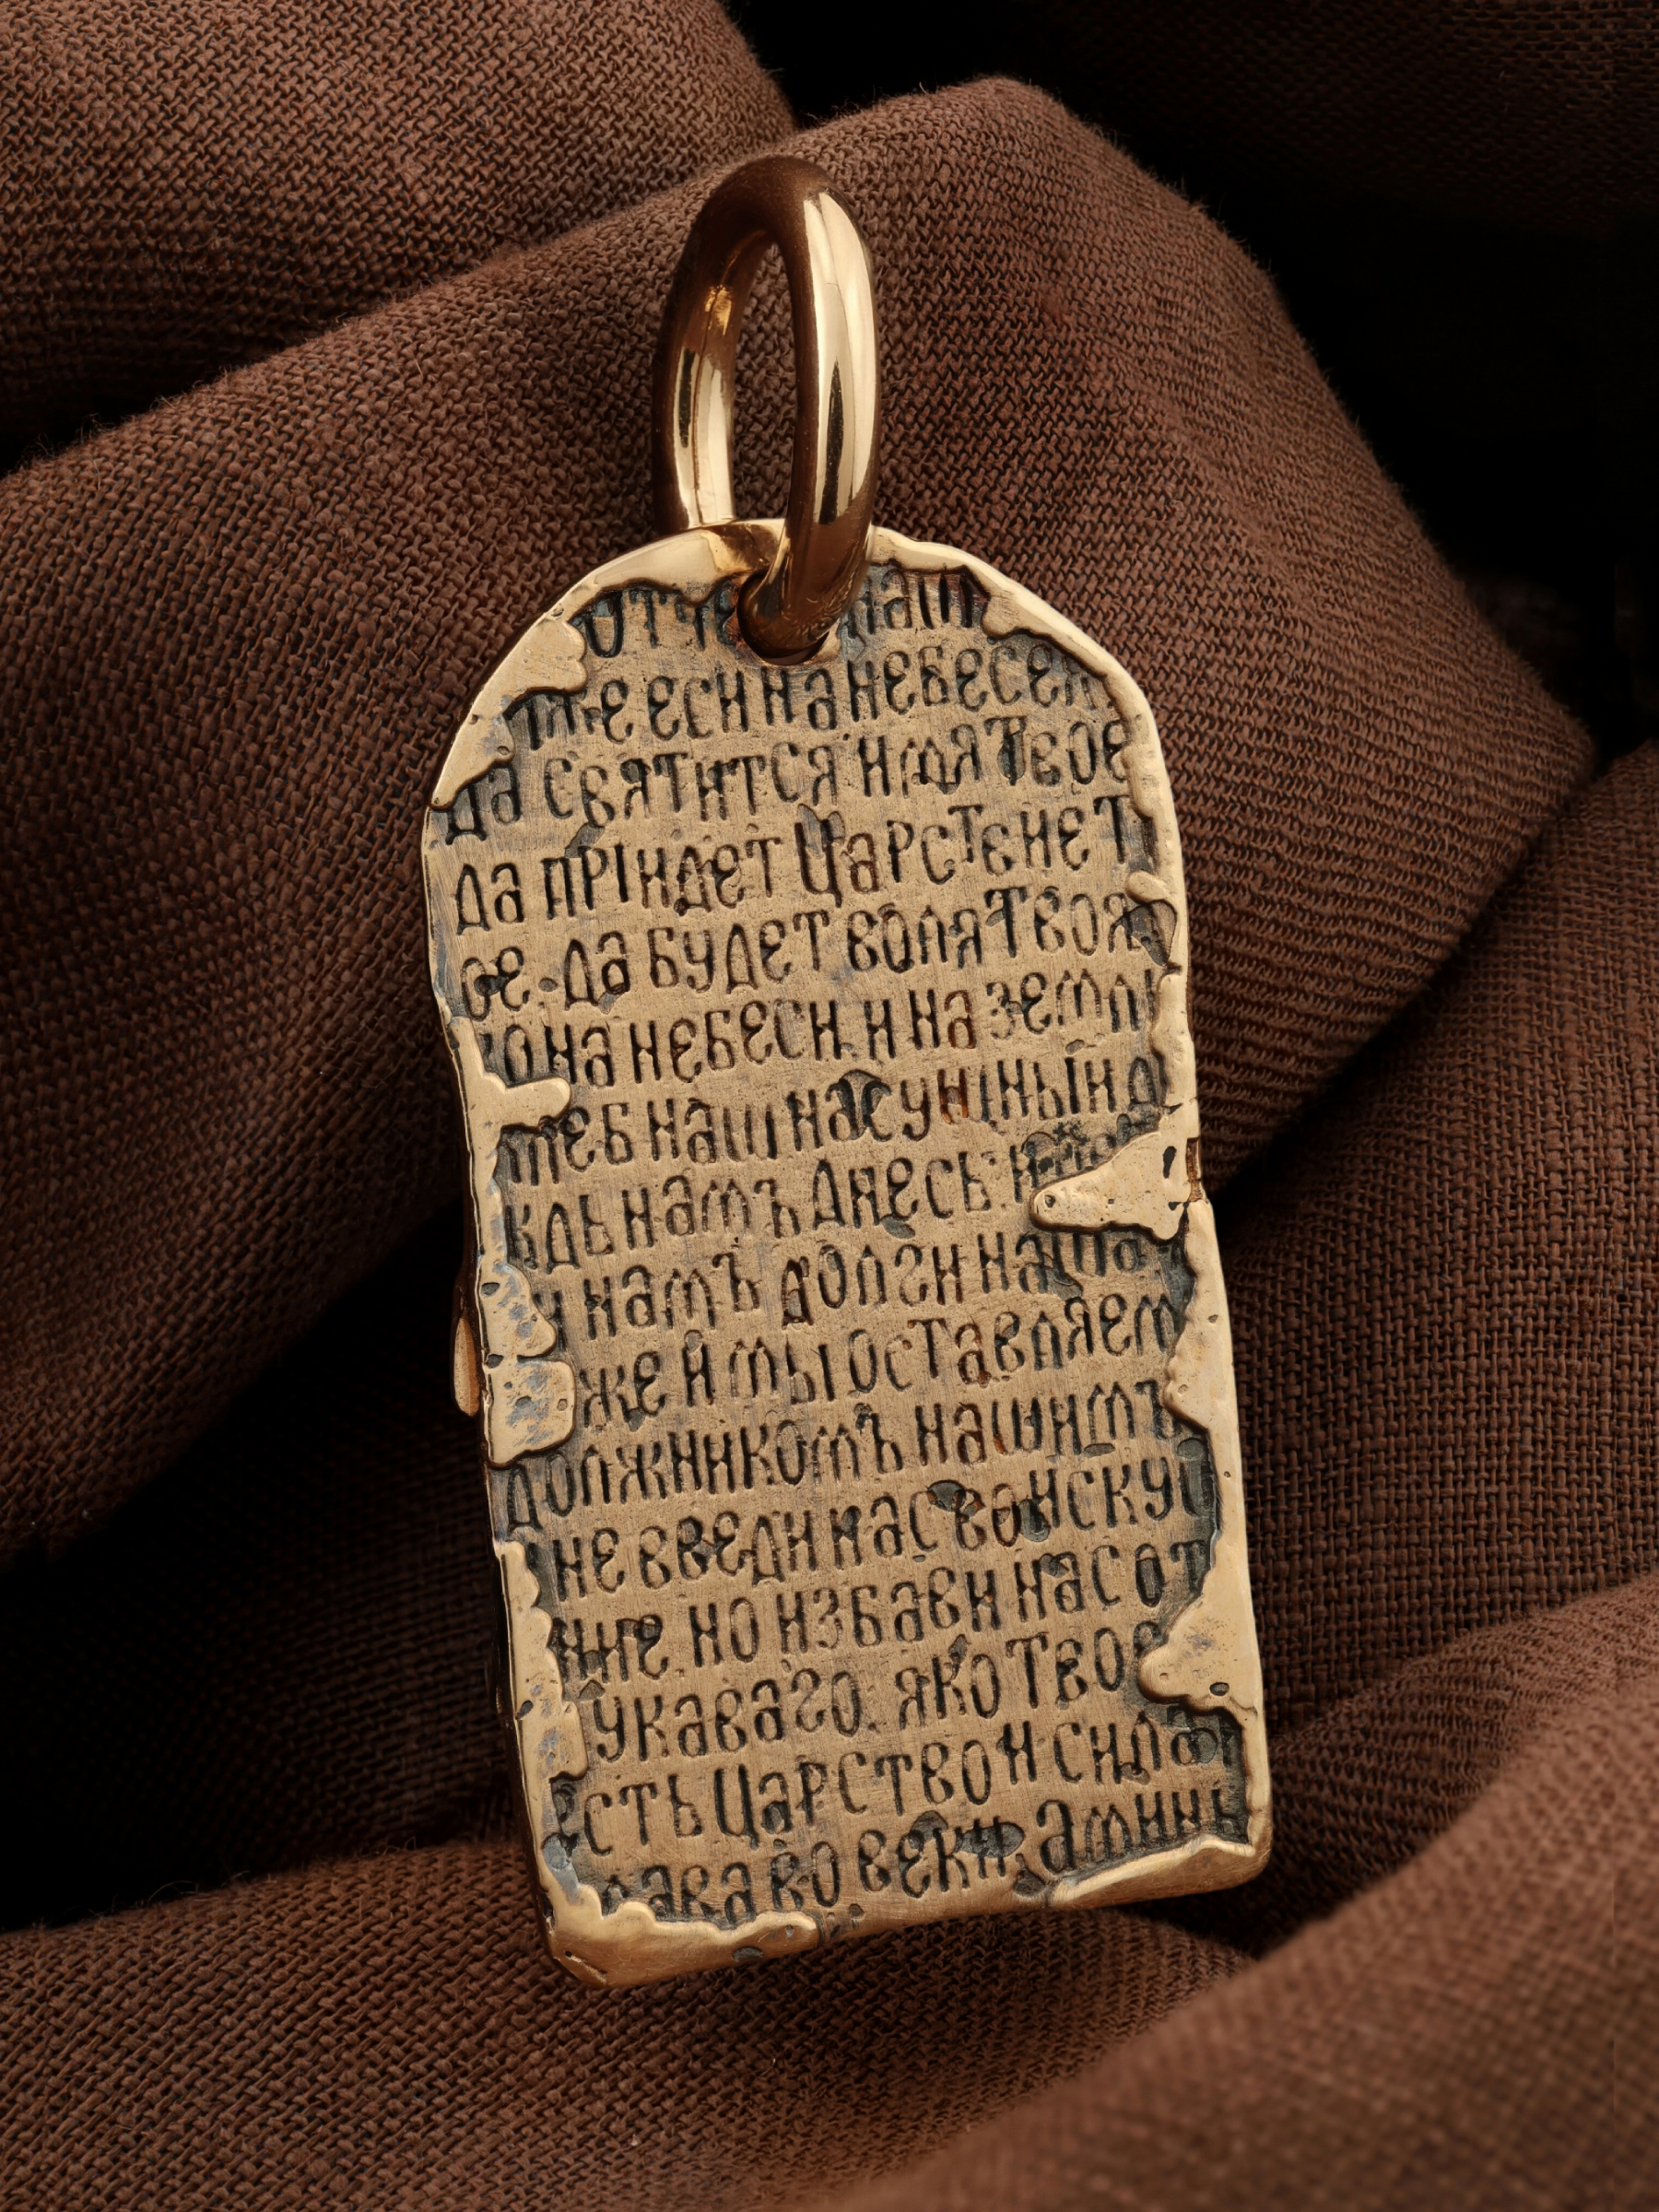 Отче наш
иже еси на небесем
да святится имя твое
да прїидет Царстене т
ое. да будет воля твоя
ко на небеси. и на земли
хлеб наш насущный д
ждь намъ днесь. и
и намъ долги наша
же и мы оставляем
должникомъ нашимъ
не введи нас во иску
ние. но избави нас от
укаваго. яко твое
есть Царство и сила и
лава во веки. Аминь